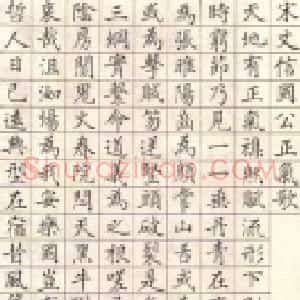 宋文信國公正氣歌
天地有正氣雜然賦流形下
時窮節乃見一一垂丹青在
為張睢陽齒為顏常山舌或
或為擊賊笏逆豎頭破裂是
三綱實繫命道義為之根嗟
陰房闃鬼火春院閟天黑牛
哀哉沮洳場為我安樂國豈
哲人日已遠典型在宿昔風
Shufaziliao.com